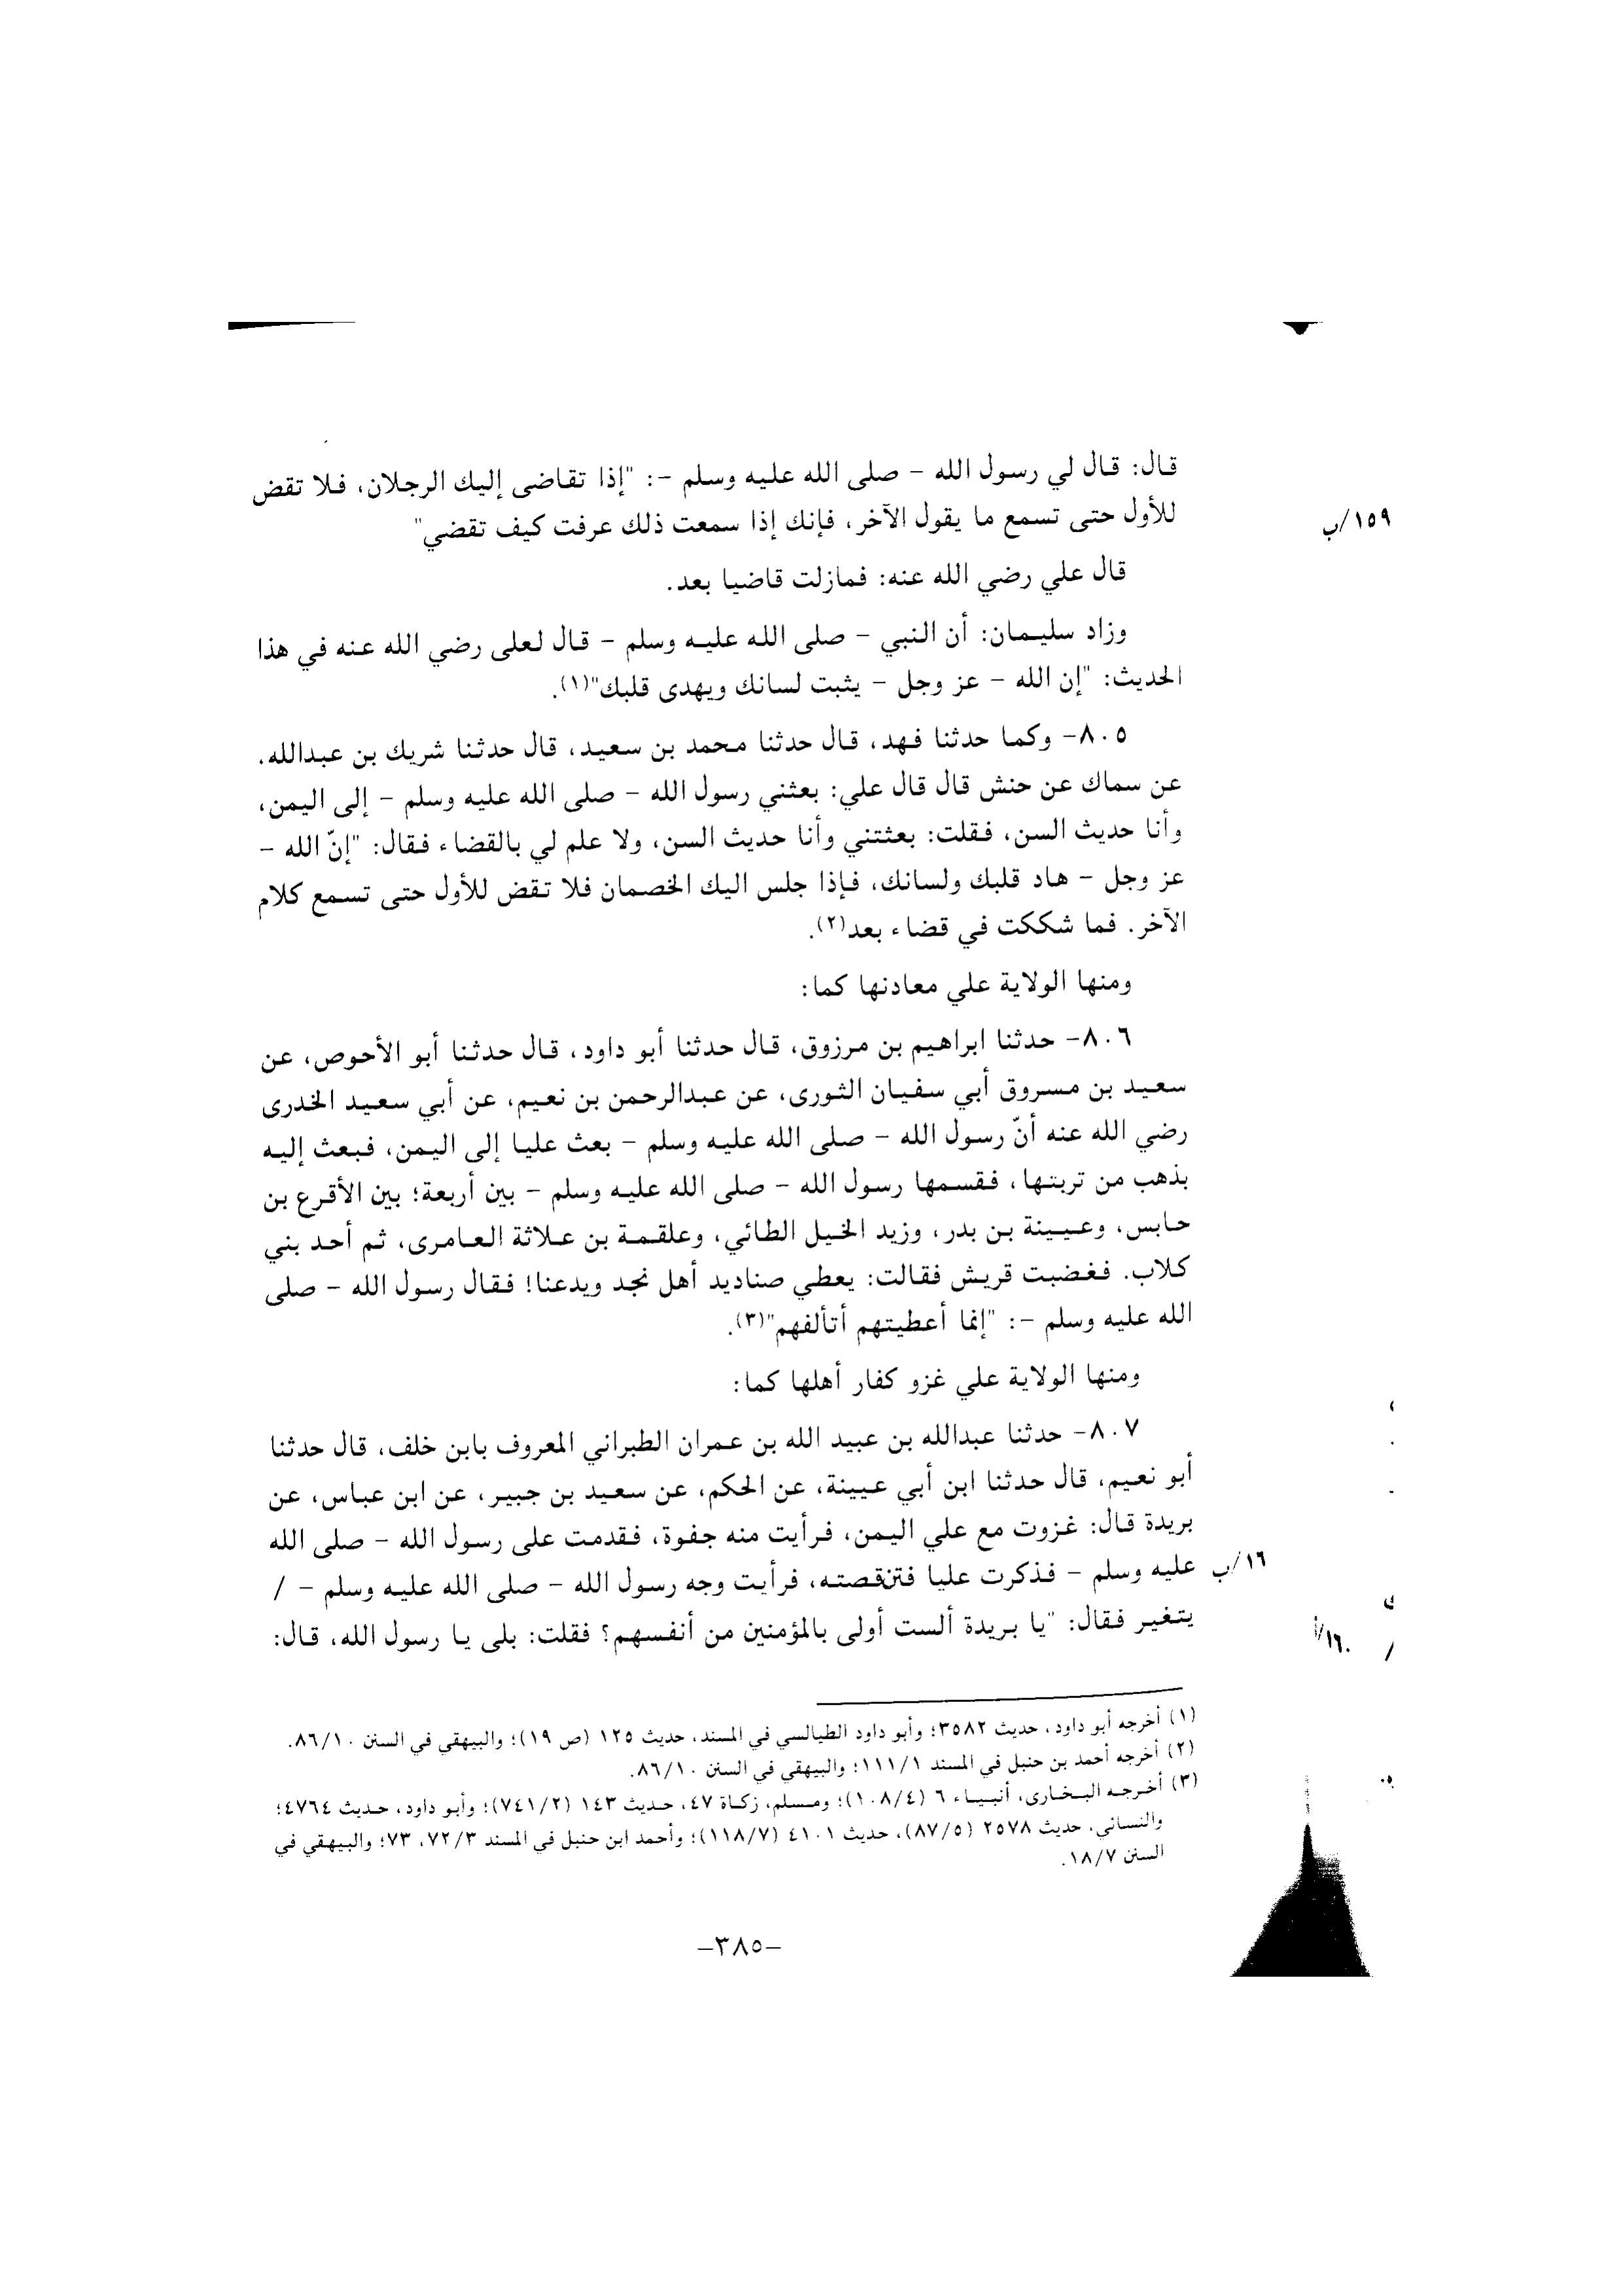 قال: قال لي رسول الله - صلى الله عليه وسلم -: "إذا تقاضى إليك الرجلان، فلا تقض
للأول حتى تسمع ما يقول الآخر، فإنك إذا سمعت ذلك عرفت كيف تقضي"
١٥٩/ب
قال علي رضي الله عنه: فمازلت قاضيا بعد.
وزاد سليمان: أن النبي - صلى الله عليه وسلم - قال لعلى رضي الله عنه في هذا
الحديث: "إن الله - عز وجل - يثبت لسانك ويهدى قلبك"(١).
٨٠٥- وكما حدثنا فهد، قال حدثنا محمد بن سعيد، قال حدثنا شريك بن عبدالله،
عن سماك عن حنش قال قال علي: بعثني رسول الله - صلى الله عليه وسلم - إلى اليمن،
وأنا حديث السن، فقلت: بعثتني وأنا حديث السن، ولا علم لي بالقضاء فقال: "إنّ الله -
عز وجل - هاد قلبك ولسانك، فإذا جلس اليك الخصمان فلا تقض للأول حتى تسمع كلام
الآخر. فما شككت في قضاء بعد(٢).
ومنها الولاية علي معادنها كما:
٨٠٦- حدثنا ابراهيم بن مرزوق، قال حدثنا أبو داود، قال حدثنا أبو الأحوص، عن
سعيد بن مسروق أبي سفيان الثورى، عن عبدالرحمن بن نعيم، عن أبي سعيد الخدرى
رضي الله عنه أنّ رسول الله - صلى الله عليه وسلم - بعث عليا إلى اليمن، فبعث إليه
بذهب من تربتها، فقسمها رسول الله - صلى الله عليه وسلم - بين أربعة؛ بين الأقرع بن
حابس، وعيينة بن بدر، وزيد الخيل الطائي، وعلقمة بن علاثة العامرى، ثم أحد بني
كلاب. فغضبت قريش فقالت: يعطي صناديد أهل نجد ويدعنا! فقال رسول الله - صلى
الله عليه وسلم -: "إنما أعطيتهم أتألفهم"(٣).
ومنها الولاية علي غزو كفار أهلها كما:
٨٠٧- حدثنا عبدالله بن عبيد الله بن عمران الطبراني المعروف بابن خلف، قال حدثنا
أبو نعيم، قال حدثنا ابن أبي عيينة، عن الحكم، عن سعيد بن جبير، عن ابن عباس، عن
بريدة قال: غزوت مع علي اليمن، فرأيت منه جفوة، فقدمت على رسول الله - صلى الله
عليه وسلم - فذكرت عليا فتنقصته، فرأيت وجه رسول الله - صلى الله عليه وسلم - /
١٦/ب
يتغير فقال: "يا بريدة ألست أولى بالمؤمنين من أنفسهم؟ فقلت: بلى يا رسول الله، قال:
١٦٠/أ
(١) أخرجه أبو داود، حديث ٣٥٨٢؛ وأبو داود الطيالسي في المسند، حديث ١٢٥ (ص ١٩)؛ والبيهقي في السنن ٨٦/١٠.
(٢) أخرجه أحمد بن حنبل في المسند ١١١/١؛ والبيهقي في السنن ٨٦/١٠.
(٣) أخرجه البخارى، أنبياء ٦ (١٠٨/٤)؛ ومسلم، زكاة ٤٧، حديث ١٤٣ (٧٤١/٢)؛ وأبو داود، حديث ٤٧٦٤؛
والنسائي، حديث ٢٥٧٨ (٨٧/٥)، حديث ٤١٠١ (١١٨/٧)؛ وأحمد ابن حنبل في المسند ٧٢/٣، ٧٣؛ والبيهقي في
السنن ١٨/٧.
-٣٨٥-